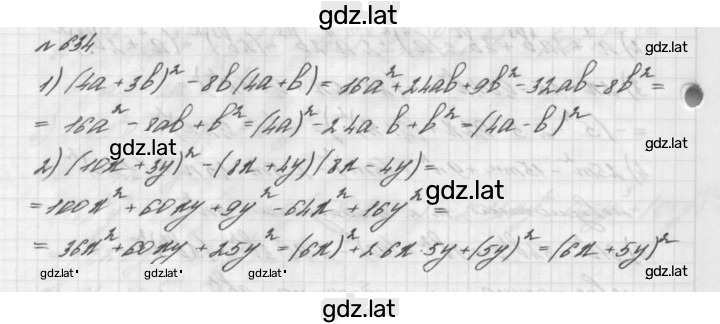 gdz.lat
№ 634.
gdz.lat
1) (4a + 3b)² - 8b(4a + b) = 16a² + 24ab + 9b² - 32ab - 8b² =
= 16a² - 8ab + b² = (4a)² - 2·4a·b + b² = (4a - b)²
gdz.lat
gdz.lat
2) (10x + 3y)² - (8x + 4y)(8x - 4y) =
gdz.lat
= 100x² + 60xy + 9y² - 64x² + 16y² =
= 36x² + 60xy + 25y² = (6x)² + 2·6x·5y + (5y)² = (6x + 5y)²
gdz.lat gdz.lat gdz.lat gdz.lat
gdz.lat